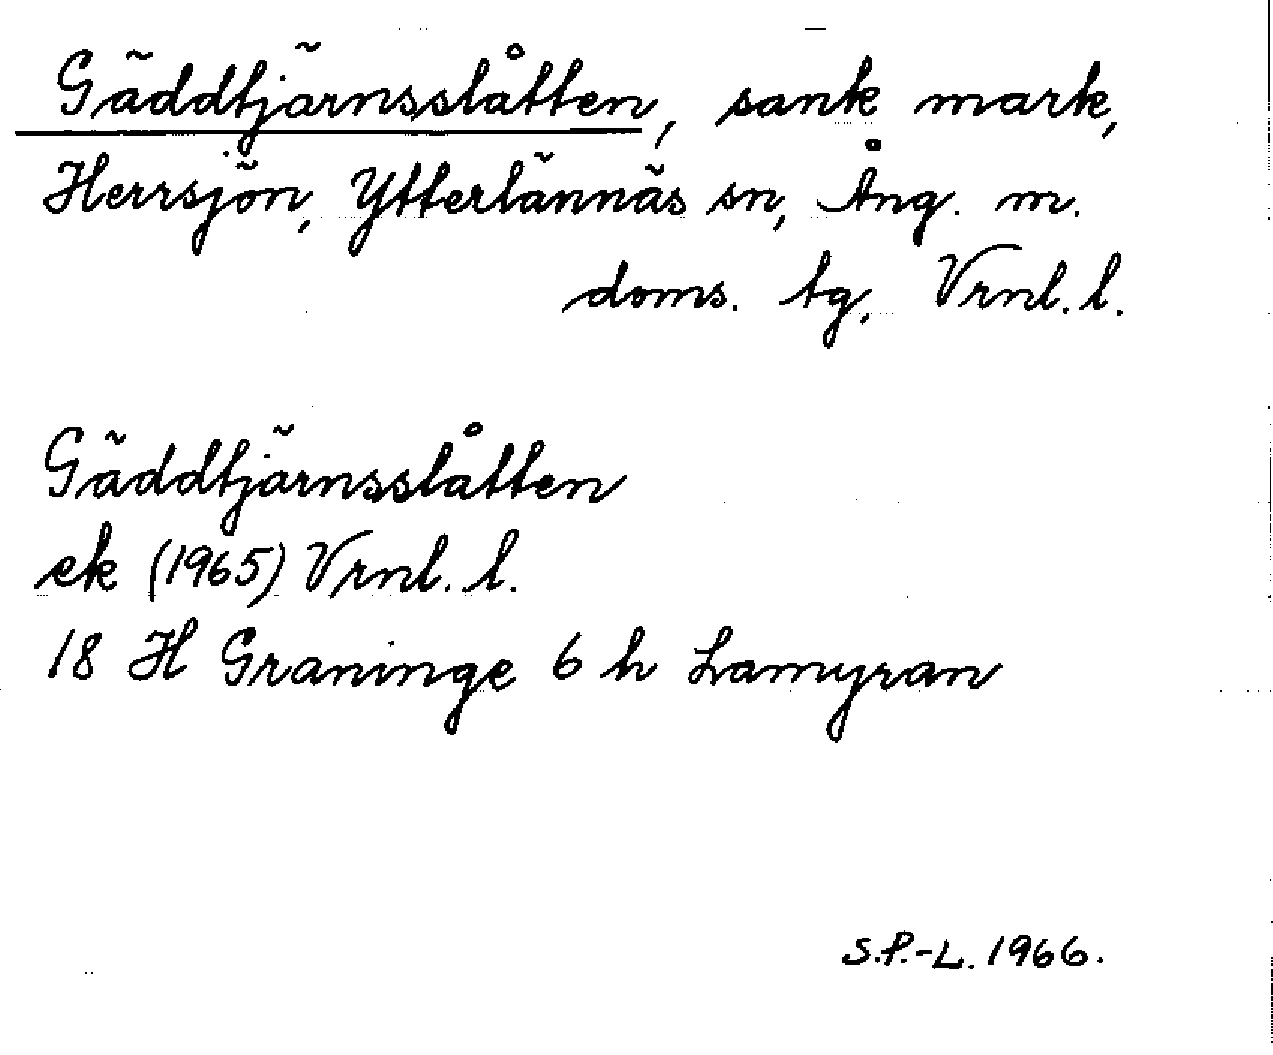 Gäddtjärnsslåtten, sank mark,
Herrsjön, Ytterlännäs sn, Ång. m.
doms. tg, Vrnl. l.
Gäddtjärnsslåtten
ek (1965) Vrnl. l.
18 H Graninge 6 h Lamyran
S.P.-L. 1966.